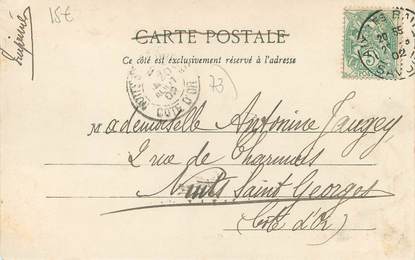 15€
Imprimé
CARTE POSTALE
Ce côté est exclusivement réservé à l'adresse
COTE D'OR
73
Mademoiselle Antonine Jaugey
2 rue de Charmois
Nuits Saint Georges
(Côte d'Or)